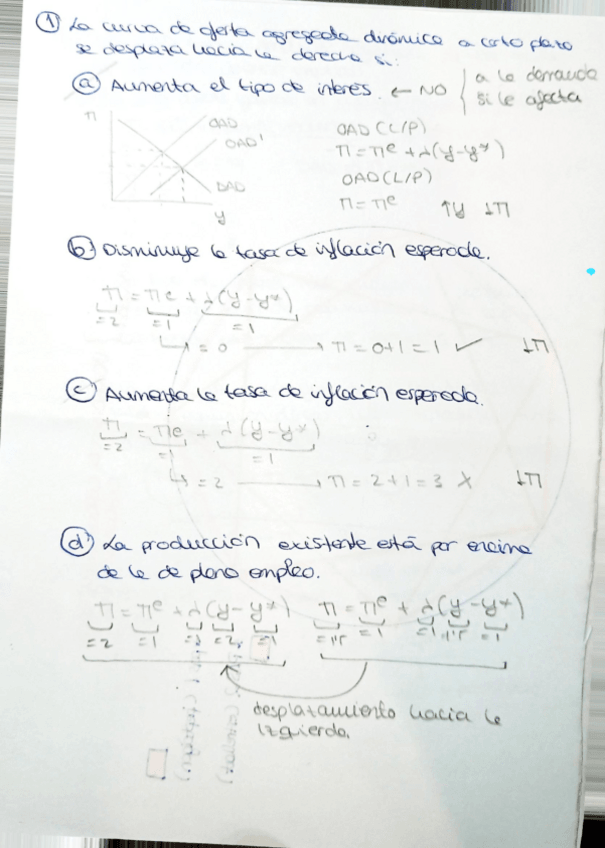 ① La curva de oferta agregada dinámica a corto plazo
se desplaza hacia la derecha si:
ⓐ Aumenta el tipo de interés. ← NO { a la demanda
si le afecta
π
OAD
OAD'
DAD
y
OAD (C/P)
π = πe + λ(y-y*)
OAD (L/P)
π = πe ↑y ↓π
ⓑ Disminuye la tasa de inflación esperada.
π = πe + λ(y-y*)
=2 =1 =1
↳ = 0 → π = 0+1 = 1 ✓ ↓π
ⓒ Aumenta la tasa de inflación esperada.
π = πe + λ(y-y*)
=2 =1 =1
↳ = 2 → π = 2+1 = 3 X ↓π
ⓓ La producción existente está por encima
de la de pleno empleo.
π = πe + λ(y-y*) π = πe + λ(y-y*)
=2 =1 =2 =1 =1'5 =1 =1 =1
desplazamiento hacia la
izquierda.